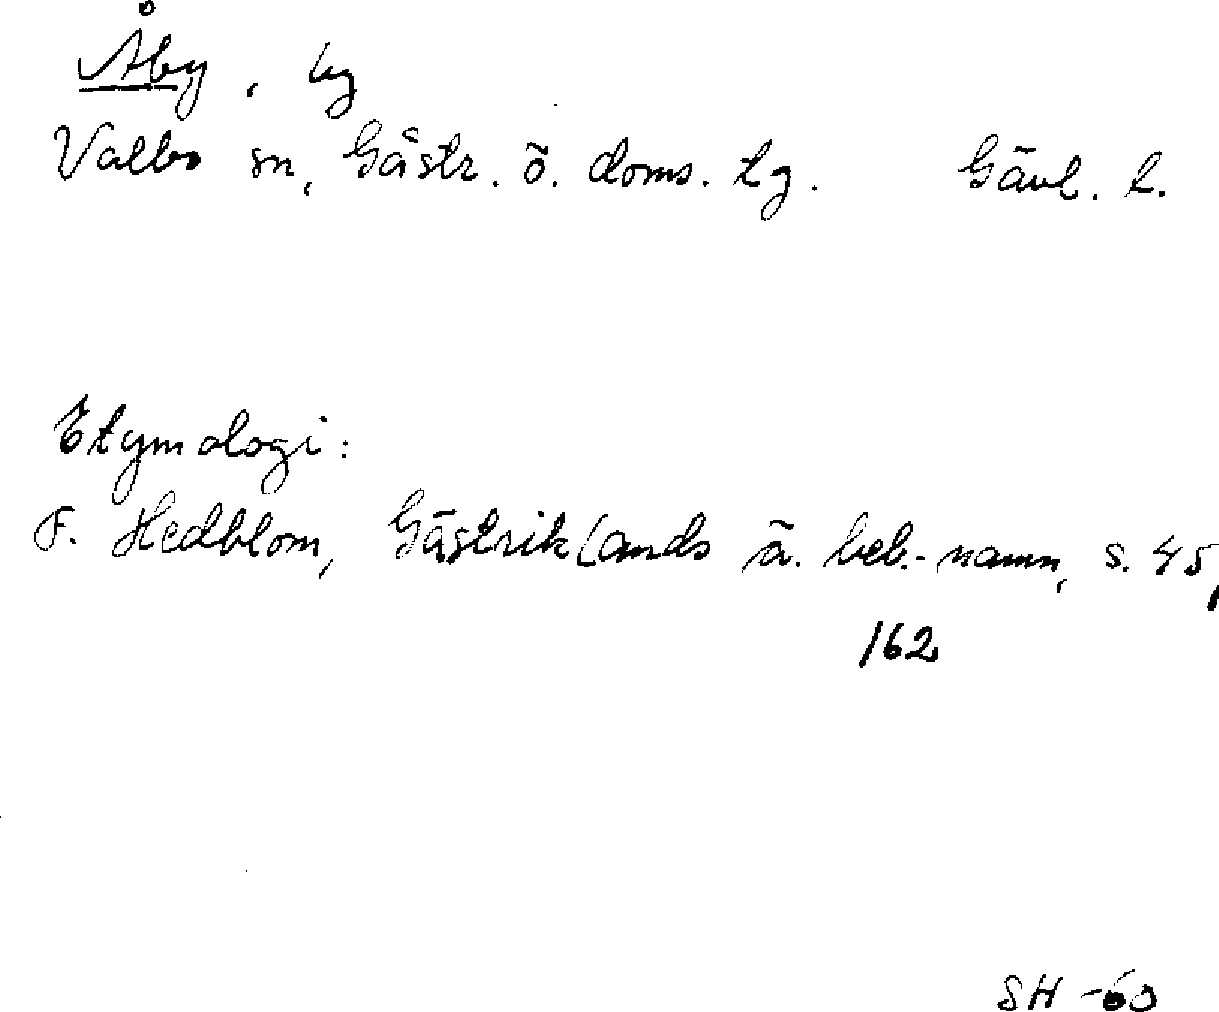 Åby, by
Valbo sn, Gästr. ö. doms. tg. Gävl. l.
Etymologi:
F. Hedblom, Gästriklands ä. beb.-namn, s. 45,
162
SH -60